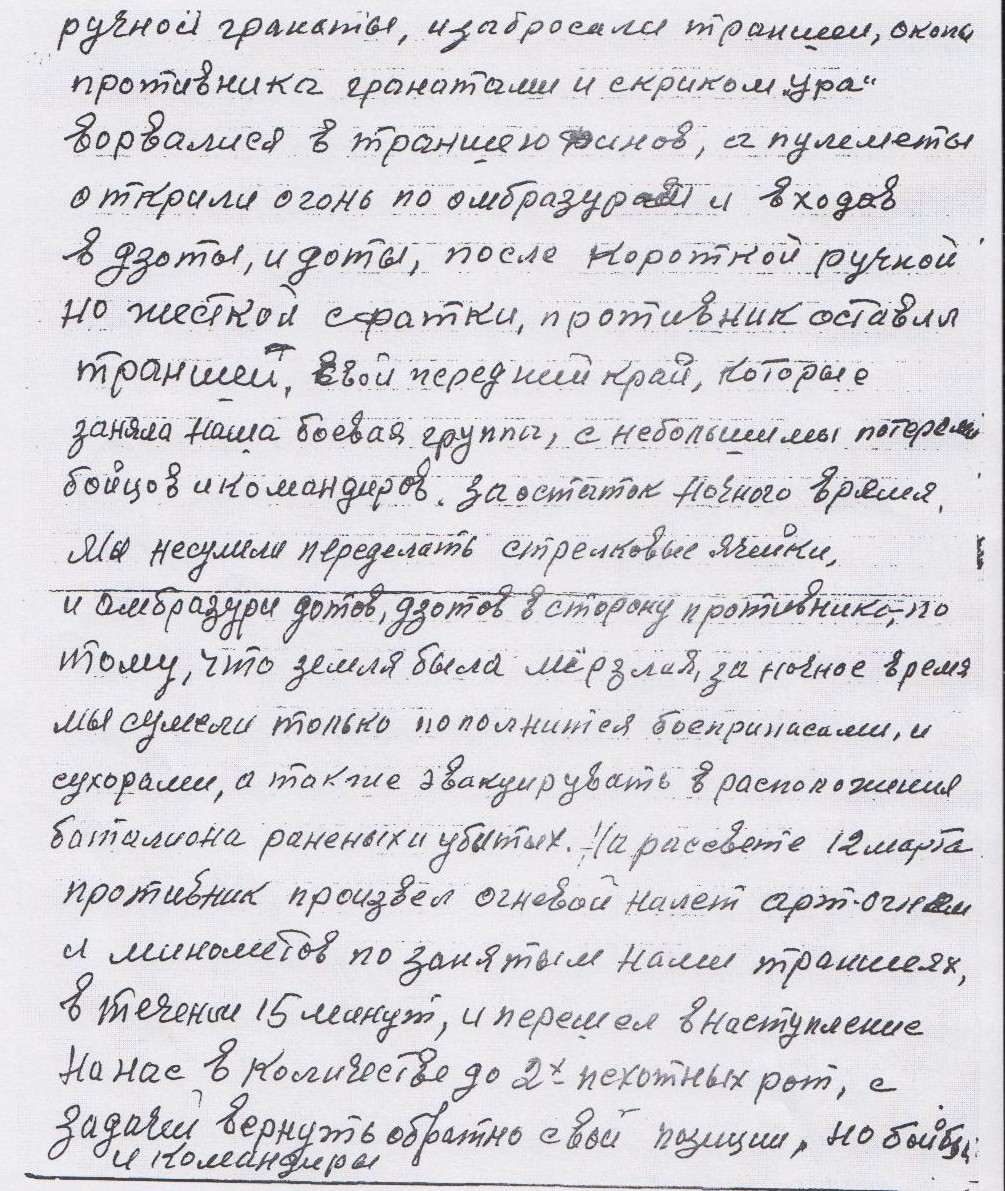 ручной гранаты, изабросали траншеи, окопы
противника гранатами и скриком „ура“
ворвалися в траншею финов, а пулеметы
открили огонь по омбразурай и входов
в дзоты, и доты, после короткой ручной
но жесткой сфатки, противник оставил
траншей, свой передний край, которые
заняла наша боевая группа, с небольшимы потерями
бойцов и командиров. за остаток ночного время,
Мы несумели переделать стрелковые ячейки,
и омбразури дотов, дзотов в сторону противника, по
тому, что земля была мёрзлая, за ночное время
мы сумели только пополнится боеприпасами, и
сухорами, а также эвакуирувать в расположения
баталиона раненых и убитых. На рассвете 12 марта
противник произвел огневой налет арт-огнем
и минометов по занятым нами траншеях,
в течении 15 минут, и перешел в наступление
на нас в количестве до 2х пехотных рот, с
задачей вернуть обратно свой позиции, но бойцы
и командиры